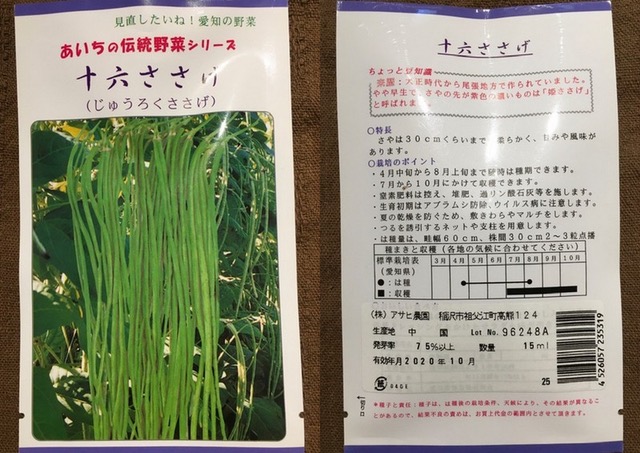 見直したいね！愛知の野菜
あいちの伝統野菜シリーズ
十六ささげ
（じゅうろくささげ）
十六ささげ
ちょっと豆知識
来歴：大正時代から尾張地方で作られていました。
やや早生で、さやの先が紫色の濃いものは「姫ささげ」
と呼ばれます
○特長
さやは30cmくらいまで 柔らかく、甘みや風味が
あります。
○栽培のポイント
・4月中旬から8月上旬まで随時は種期できます。
・7月から10月にかけて収穫できます。
・窒素肥料は控え、堆肥、過リン酸石灰等を施します。
・生育初期はアブラムシ防除、ウイルス病に注意します。
・夏の乾燥を防ぐため、敷きわらやマルチをします。
・つるを誘引するネットや支柱を用意します。
・は種量は、畦幅60cm、株間30cm2～3粒点播
種まきと収穫（各地の気候に合わせてください）
標準栽培表 3月 4月 5月 6月 7月 8月 9月 10月
（愛知県）
●：は種
■：収穫
（株）アサヒ農園 稲沢市祖父江町高熊124
生産地 中 国 Lot No. 96248A
発芽率 75%以上 数量 15ml
有効年月2020年10月
0406 25
4 526057 235319
＊種子と責任：種子は、は種後の栽培条件、天候により、その結果が異なるこ
とがあるので、結果不良の責めは、お買上代金の範囲内とさせて頂きます。